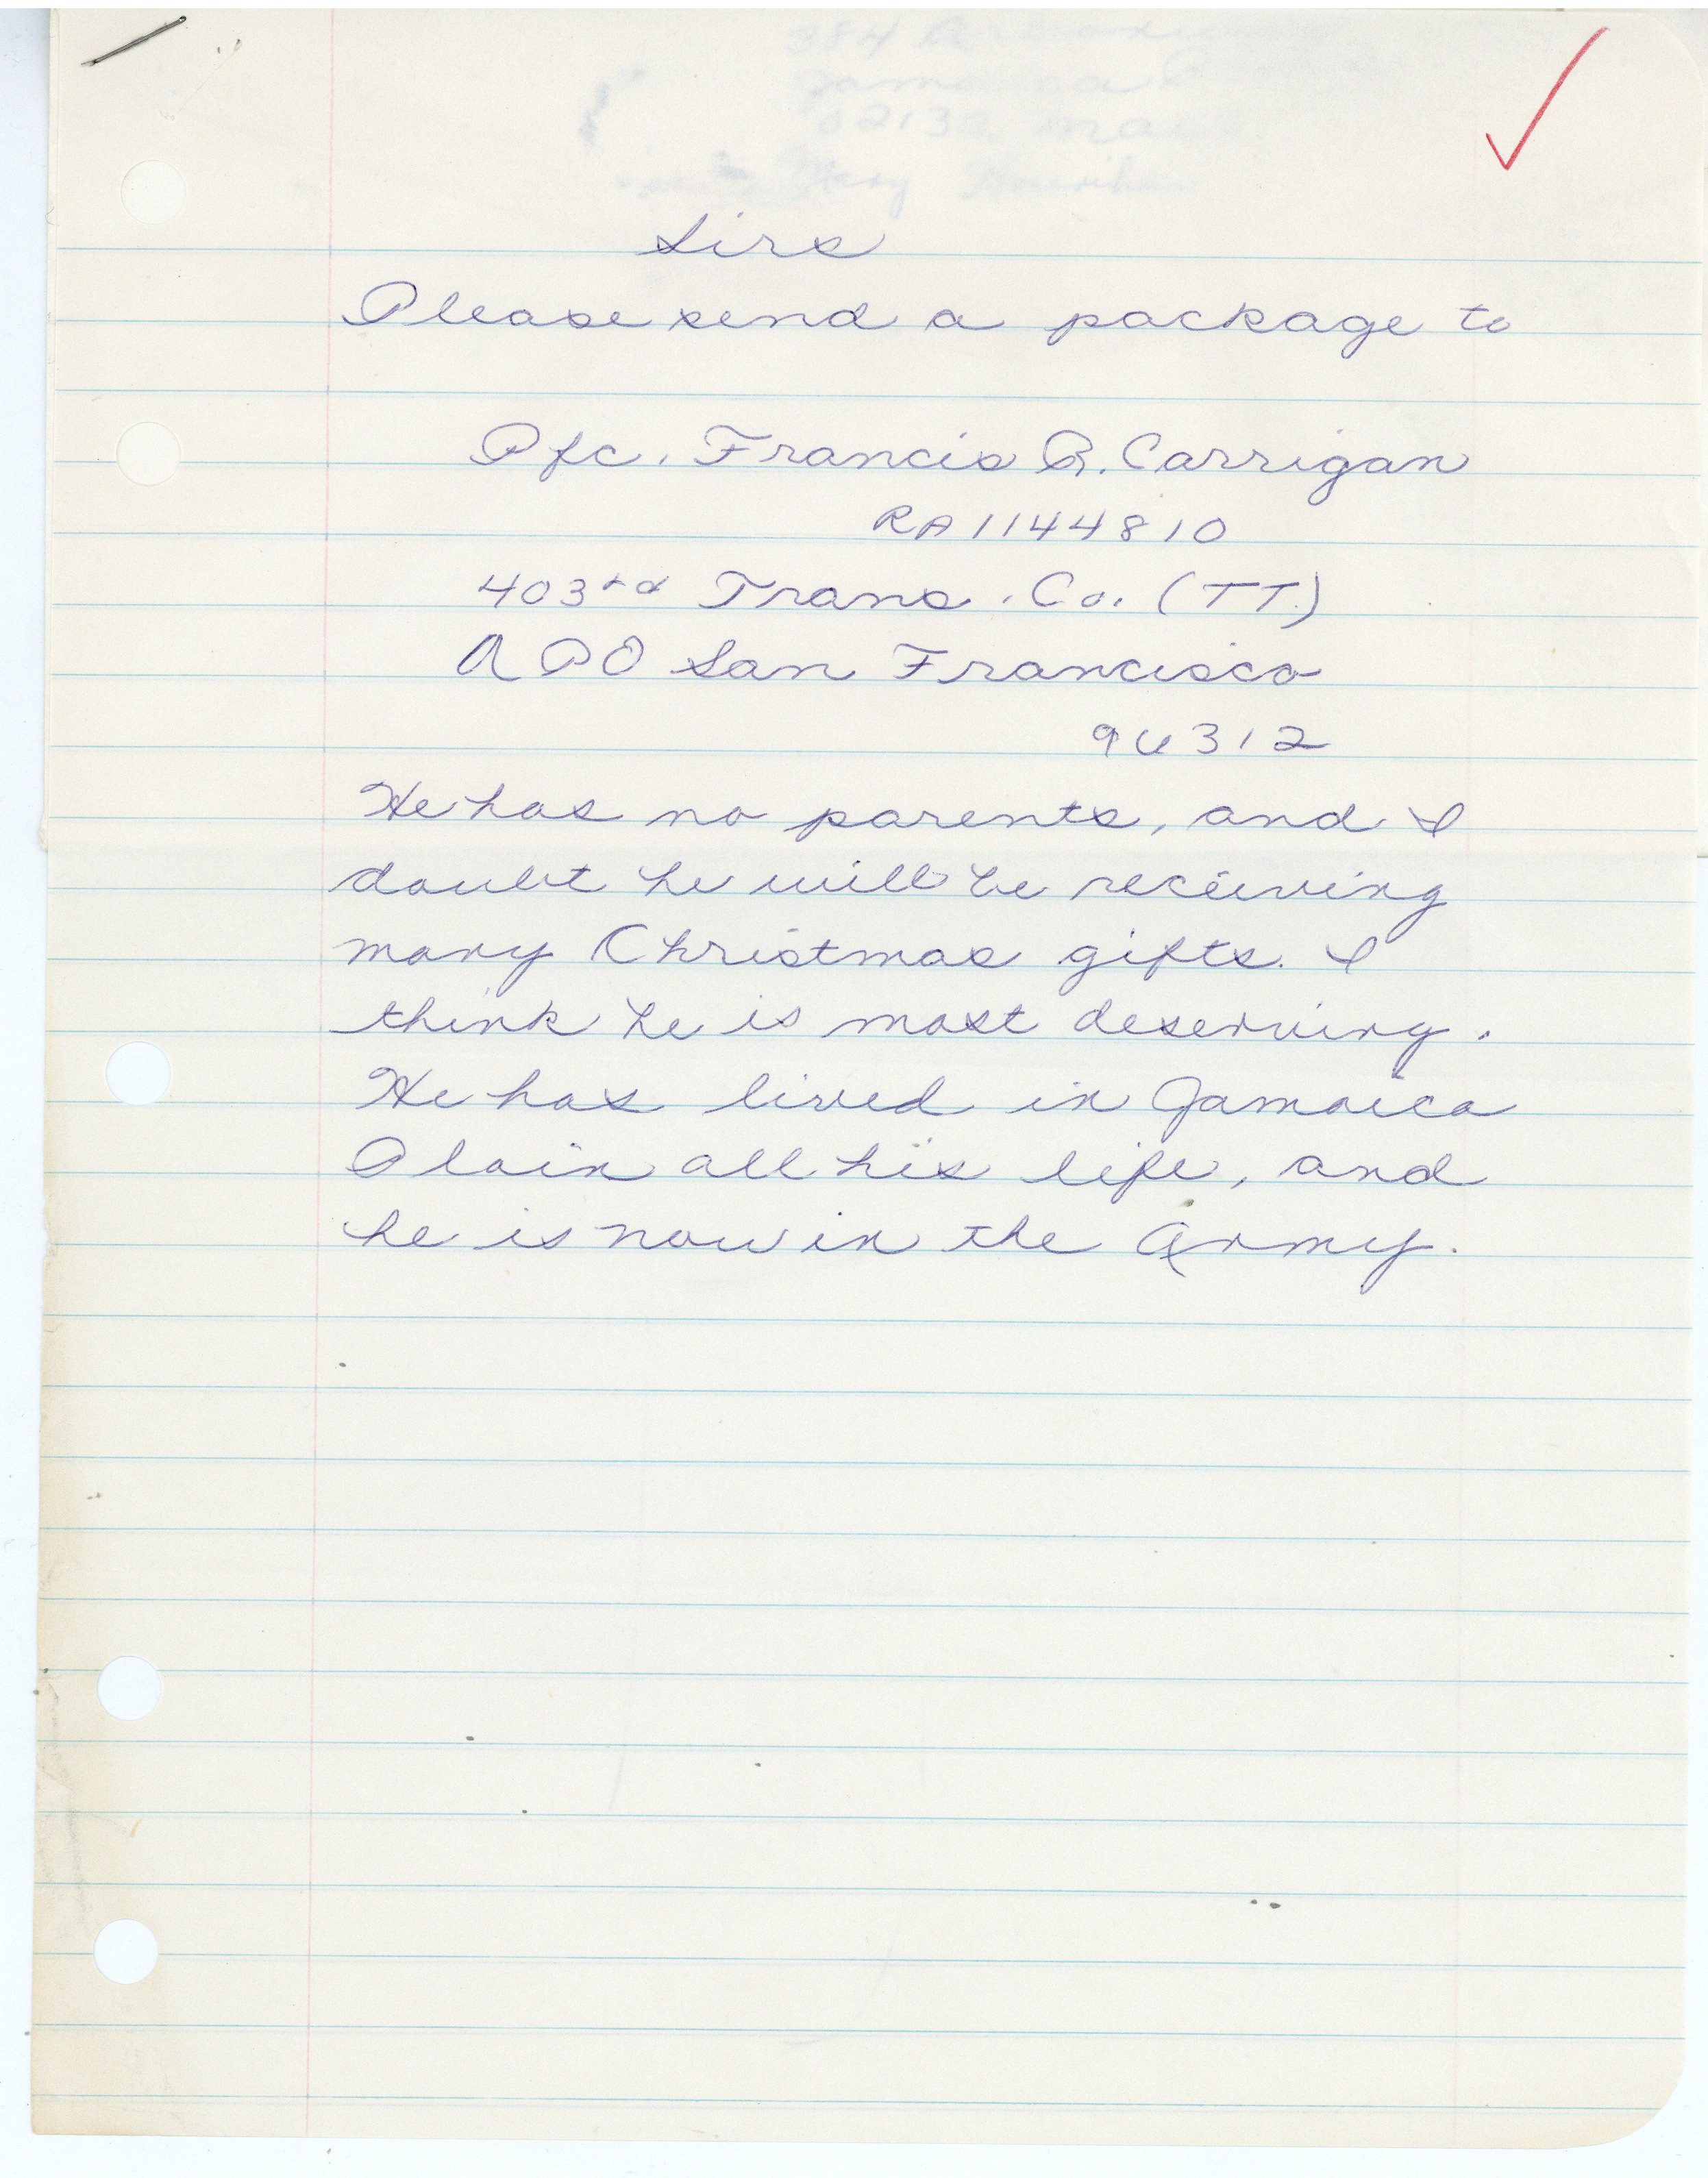 Sirs
Please send a package to
Pfc. Francis R. Carrigan
RA 1144810
403rd Trans. Co. (TT)
APO San Francisco
96312
He has no parents, and I
doubt he will be receiving
many Christmas gifts. I
think he is most deserving.
He has lived in Jamaica
Plain all his life, and
he is now in the Army.